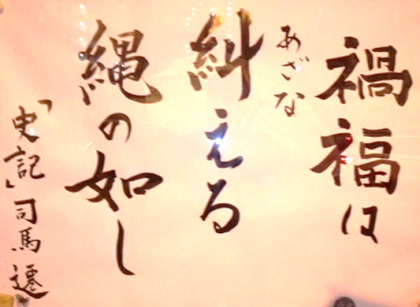 禍福は
あざな
糾える
縄の如し
「史記」司馬遷